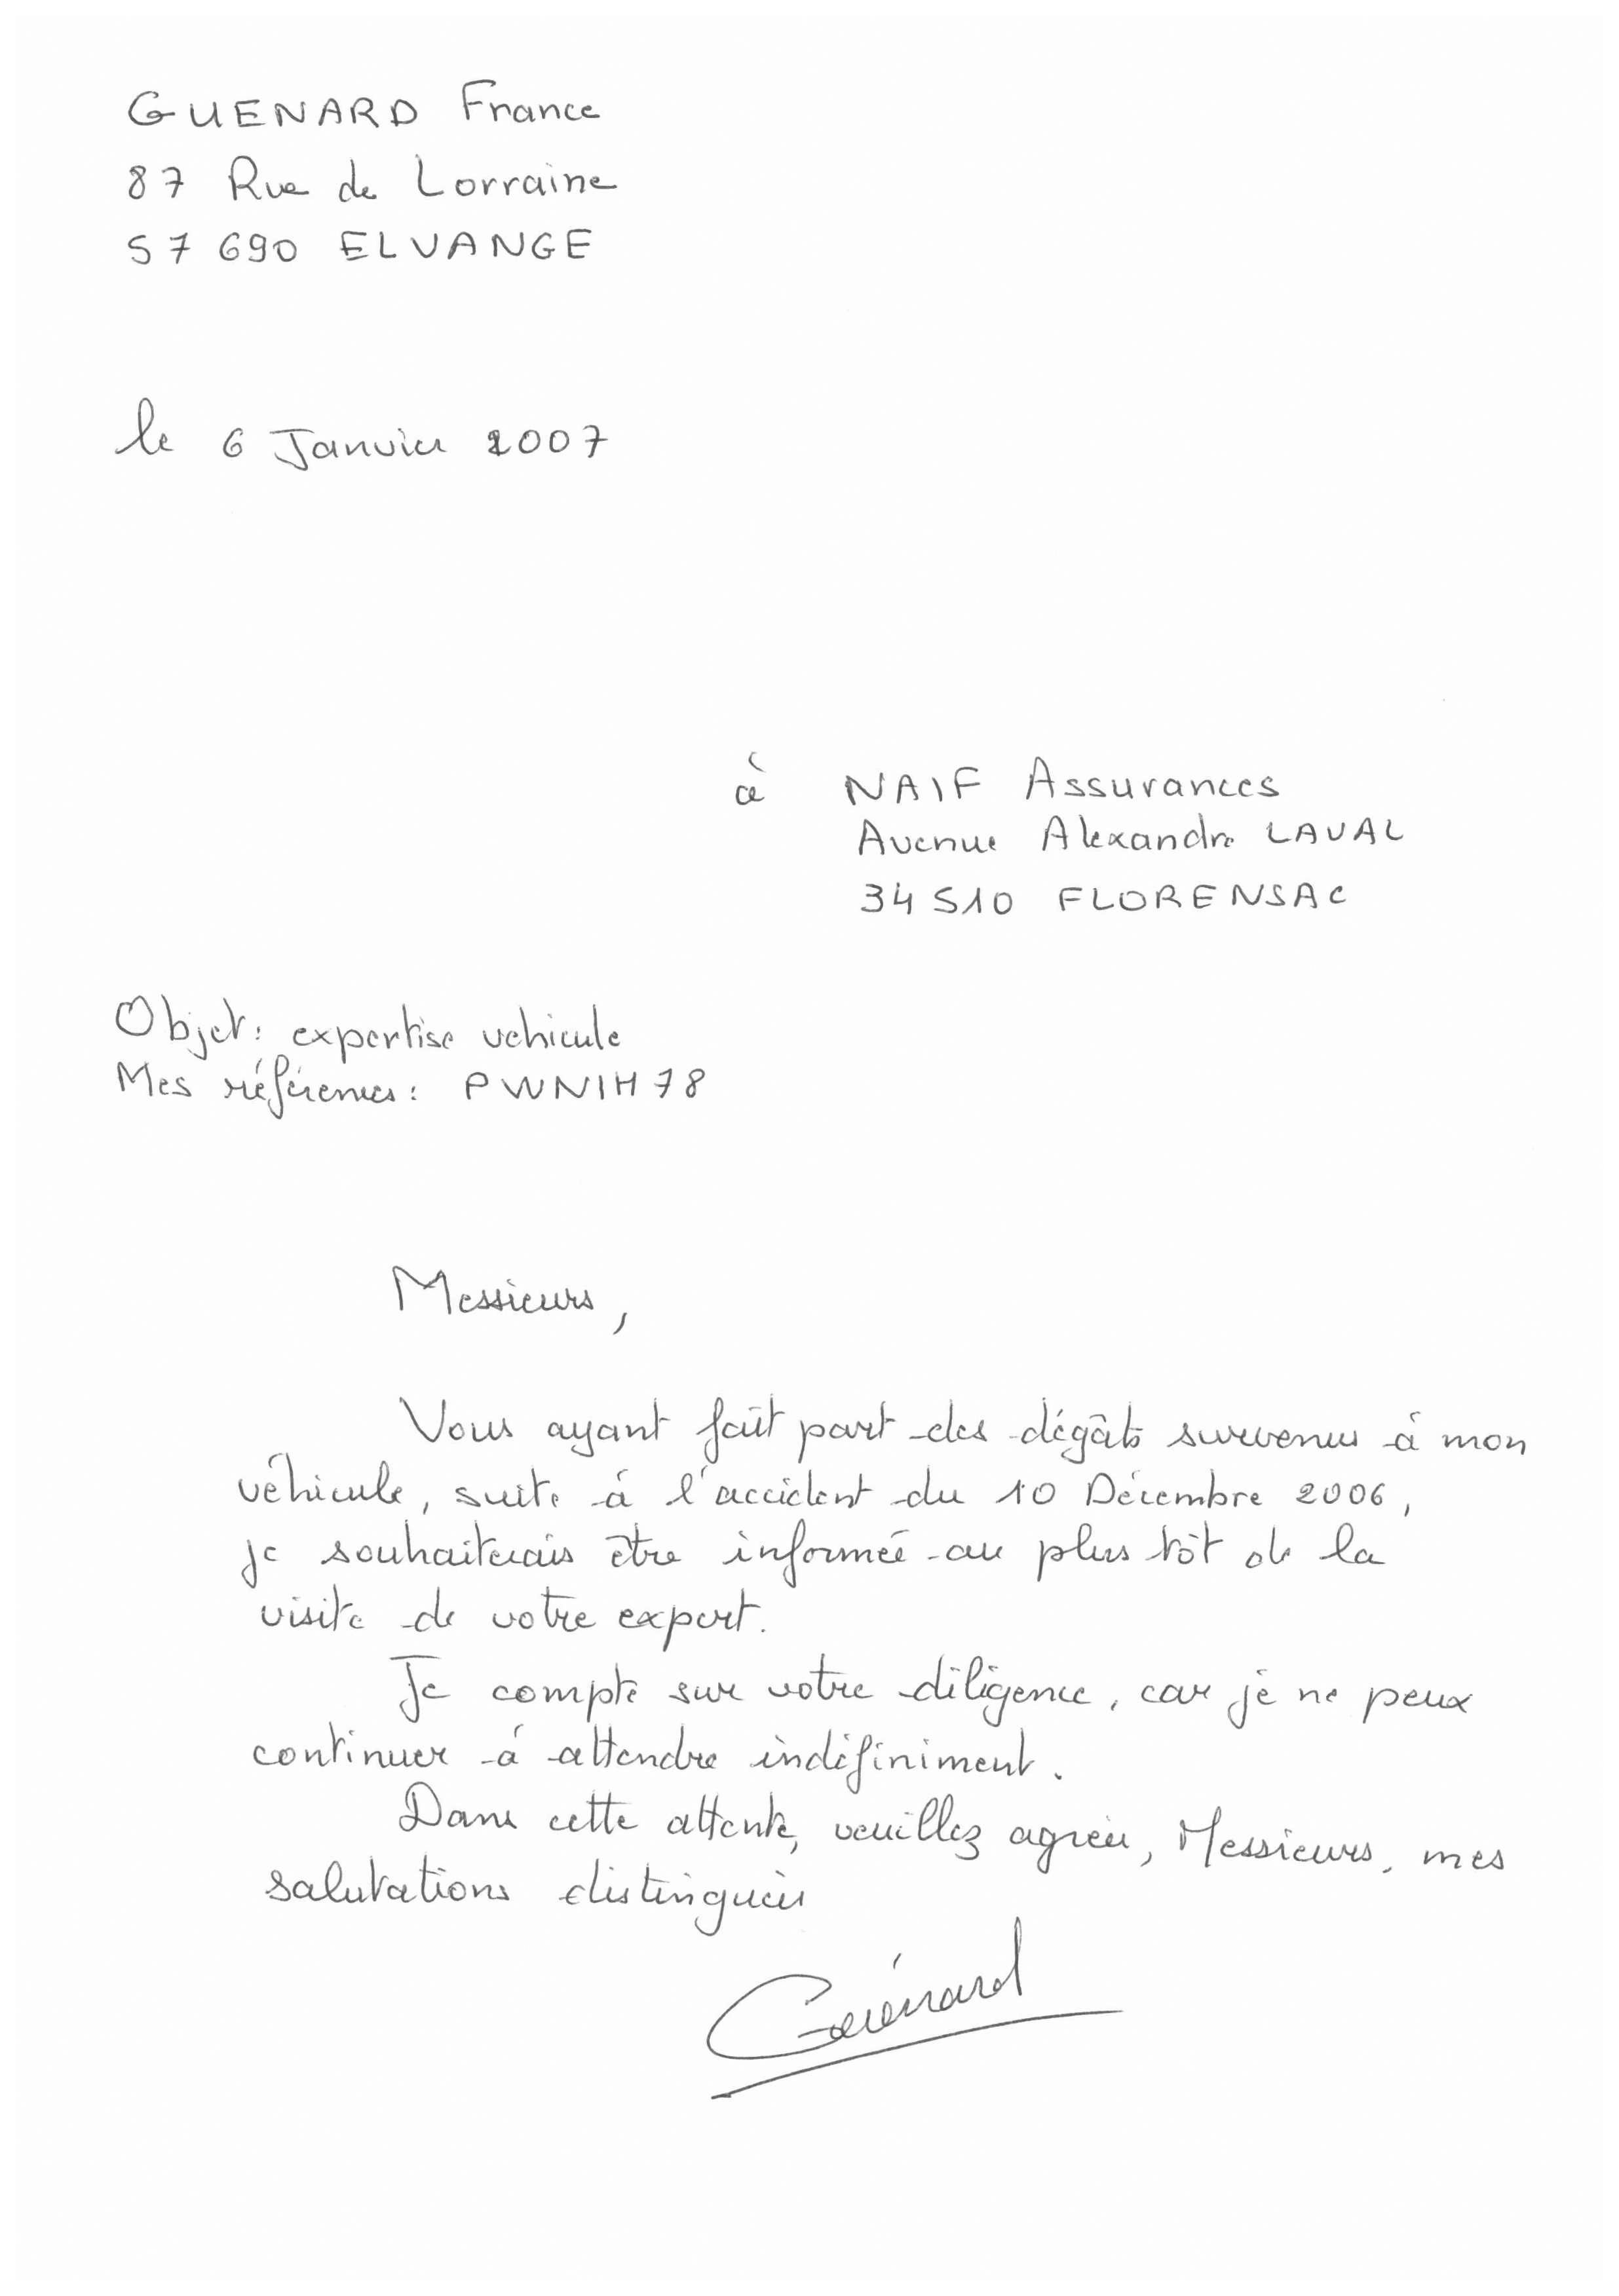 GUENARD France
87 Rue de Lorraine
57 690 ELVANGE
le 6 Janvier 2007
à NAIF Assurances
Avenue Alexandre LAVAL
34 510 FLORENSAC
Objet : expertise vehicule
Mes références : PWNIH78
Messieurs,
Vous ayant fait part des dégâts survenus à mon
véhicule, suite à l'accident du 10 Décembre 2006,
je souhaiterais être informée au plus tôt de la
visite de votre expert.
Je compte sur votre diligence, car je ne peux
continuer à attendre indéfiniment.
Dans cette attente, veuillez agréer, Messieurs, mes
salutations distinguées
Guénard